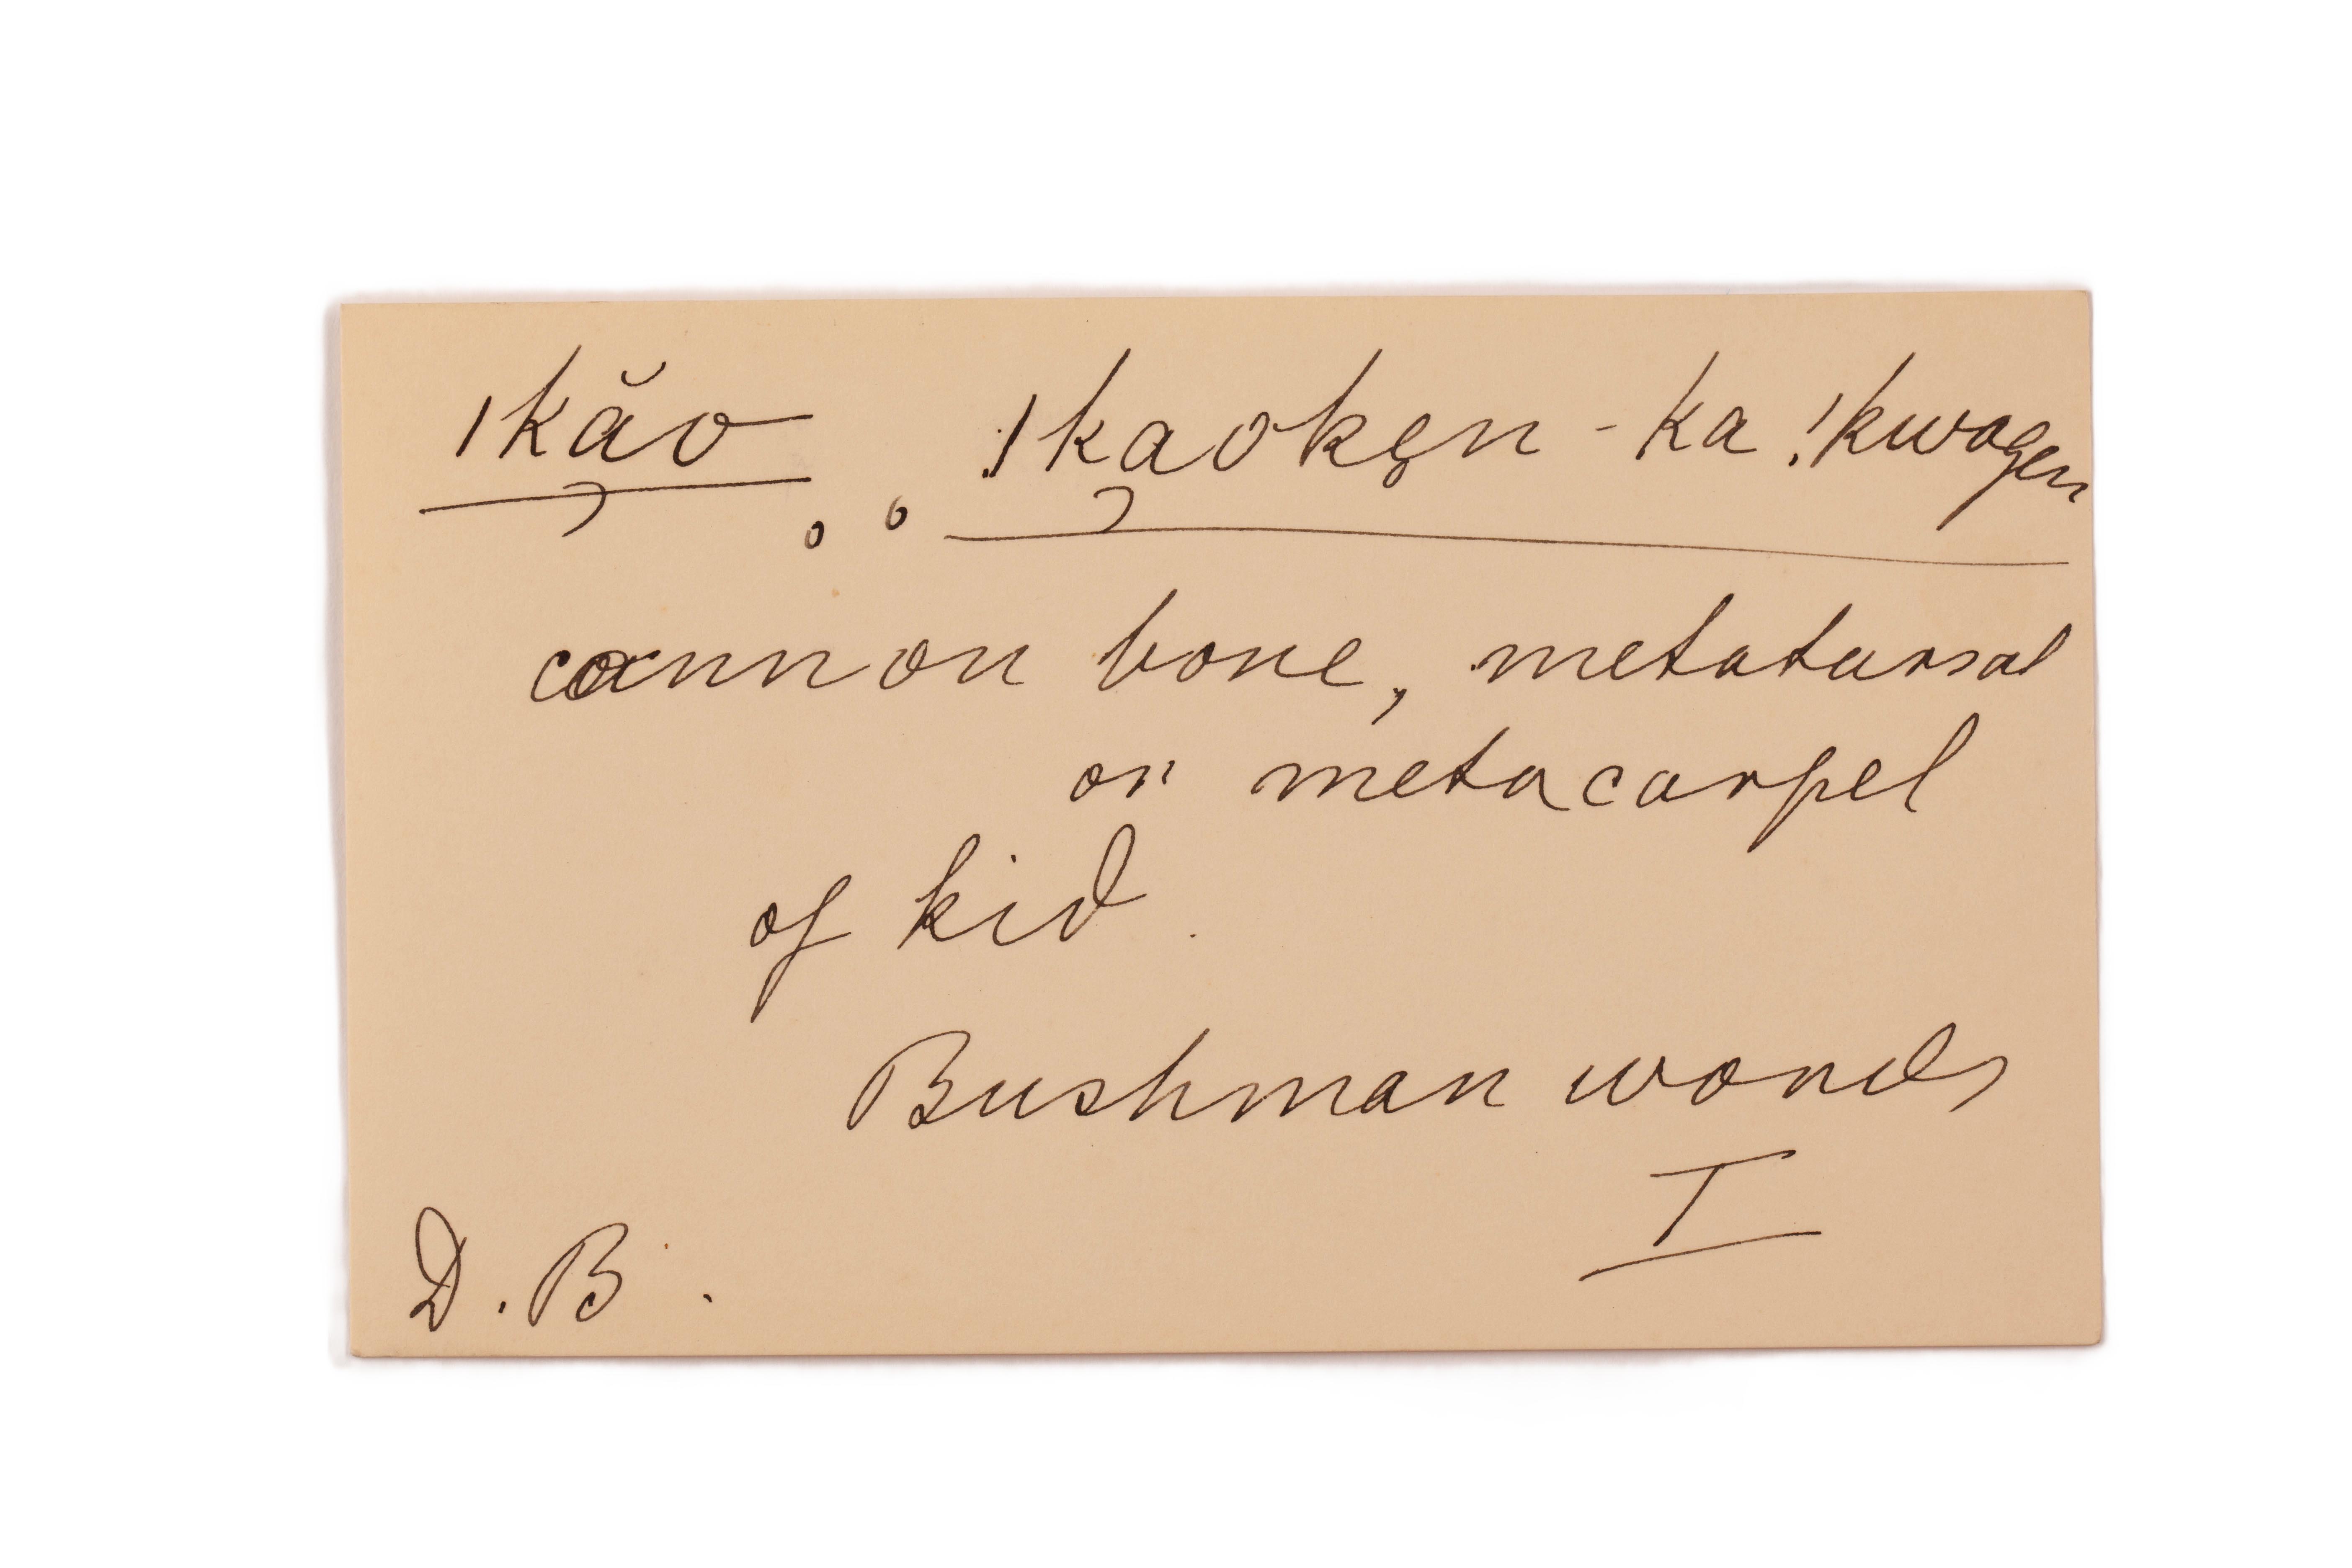 ǀkăo ǃkaokęn-ka ǃkwagen
cannon bone, metatarsal
or metacarpel
of kid.
Bushman words
I
D.B.